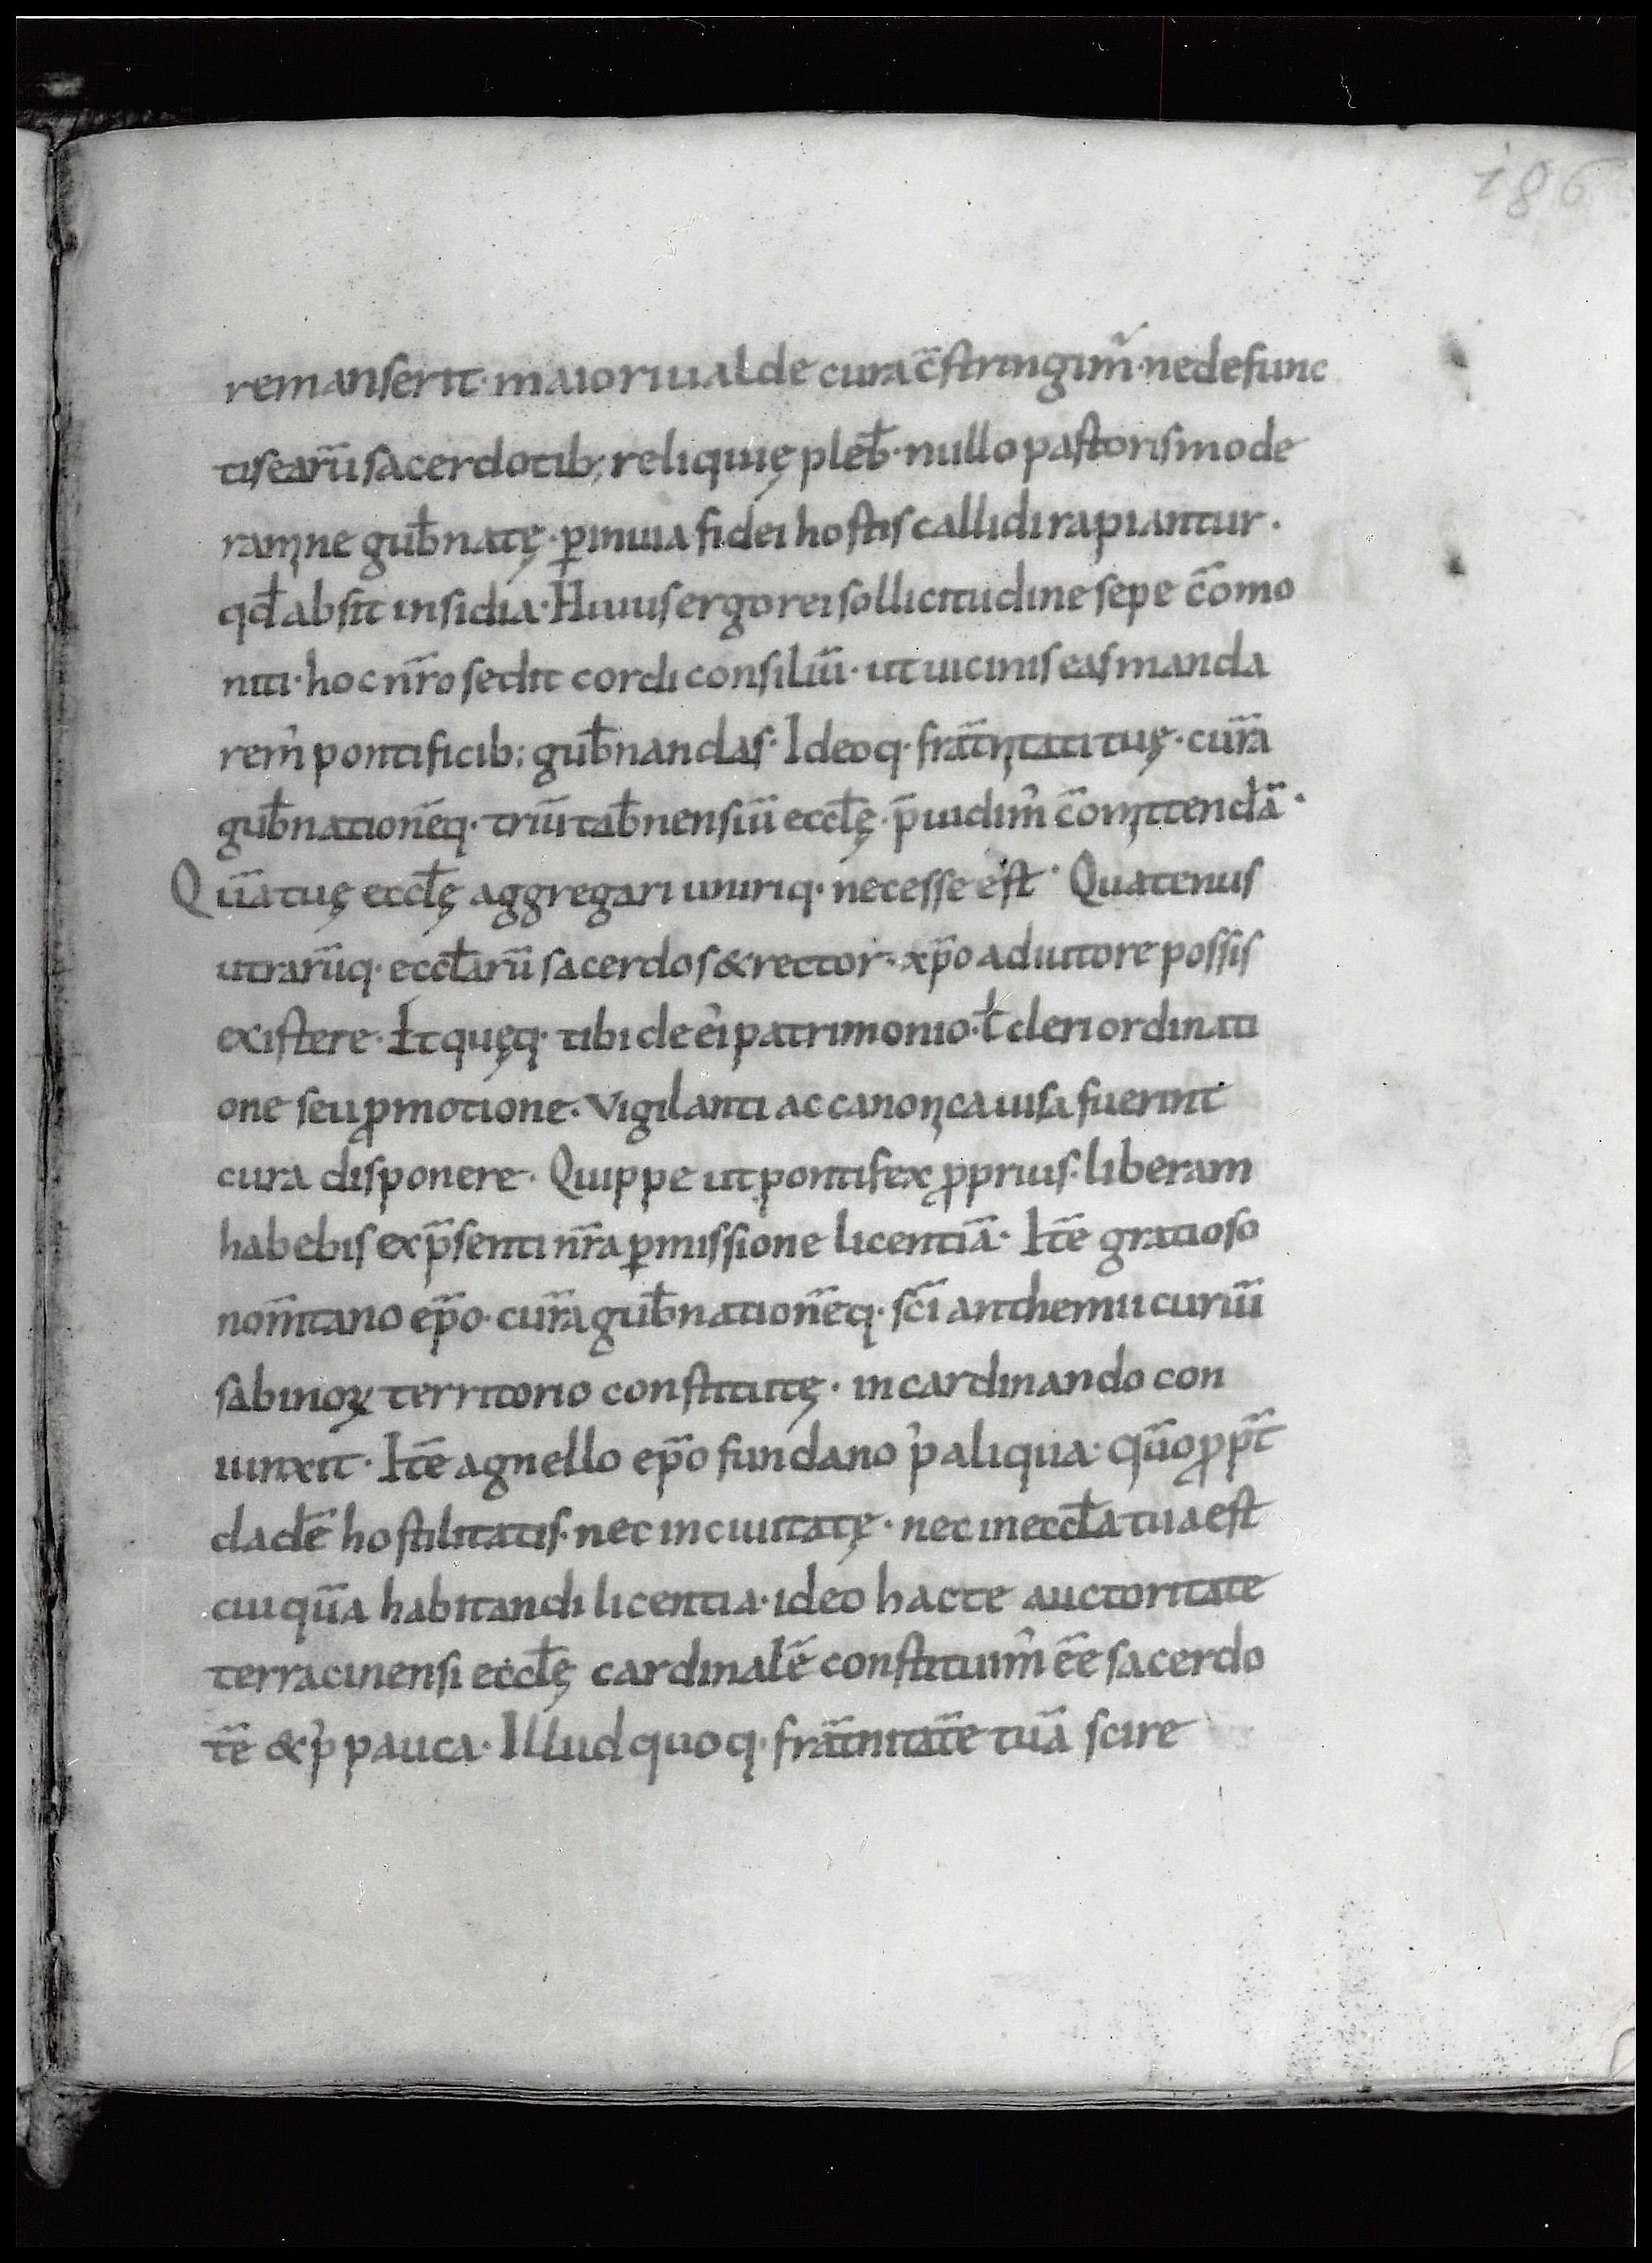 186
remanserit· maiori ualde cura c̄stringim᷒· ne defunc
tis earū sacerdotib; reliquię pleb̄· nullo pastoris mode
ramne gub̄natę· ꝑ inuia fidei hostis callidi rapiantur·
qd̄ absit insidia· Huius ergo rei sollicitudine sepe c̄omo
niti· hoc nr̄o sedit cordi consiliū· ut uicinis eas manda
rem᷒ pontificib; gub̄nandas· Ideoq· frat̄nitati tuę· curā
gub̄nationēq· triū tab̄nensiū eccl̄ę· p̄uidim᷒ c̄omittendā·
Quā tuę eccl̄ę aggregari uniriq· necesse est· Quatenus
utrarūq· eccl̄arū sacerdos & rector· xp̄o adiutore possis
existere· Et quęq· tibi de ei᷒ patrimonio· ł cleri ordinati
one seu ꝓmotione· Vigilanti ac canonica uisa fuerint
cura disponere· Quippe ut pontifex ꝓprius· liberam
habebis ex p̄senti nr̄a ꝑmissione licentiā· Itē gratioso
nom̄tano ep̄o· curā gub̄nationēq· sc̄i anthemii curiū
sabinoꝝ territorio constitutę· incardinando con
iunxit· Itē agnello ep̄o fundano p᷒ aliqua· qūo ꝓpt̄
cladē hostilitatis· nec in ciuitatę· nec in eccl̄a tua est
cuiquā habitandi licentia· ideo hac te auctoritate
terracinensi eccl̄ę cardinalē constituim᷒ ēē sacerdo
tē & p᷒ pauca· Illud quoq· frat̄nitatē tuā scire